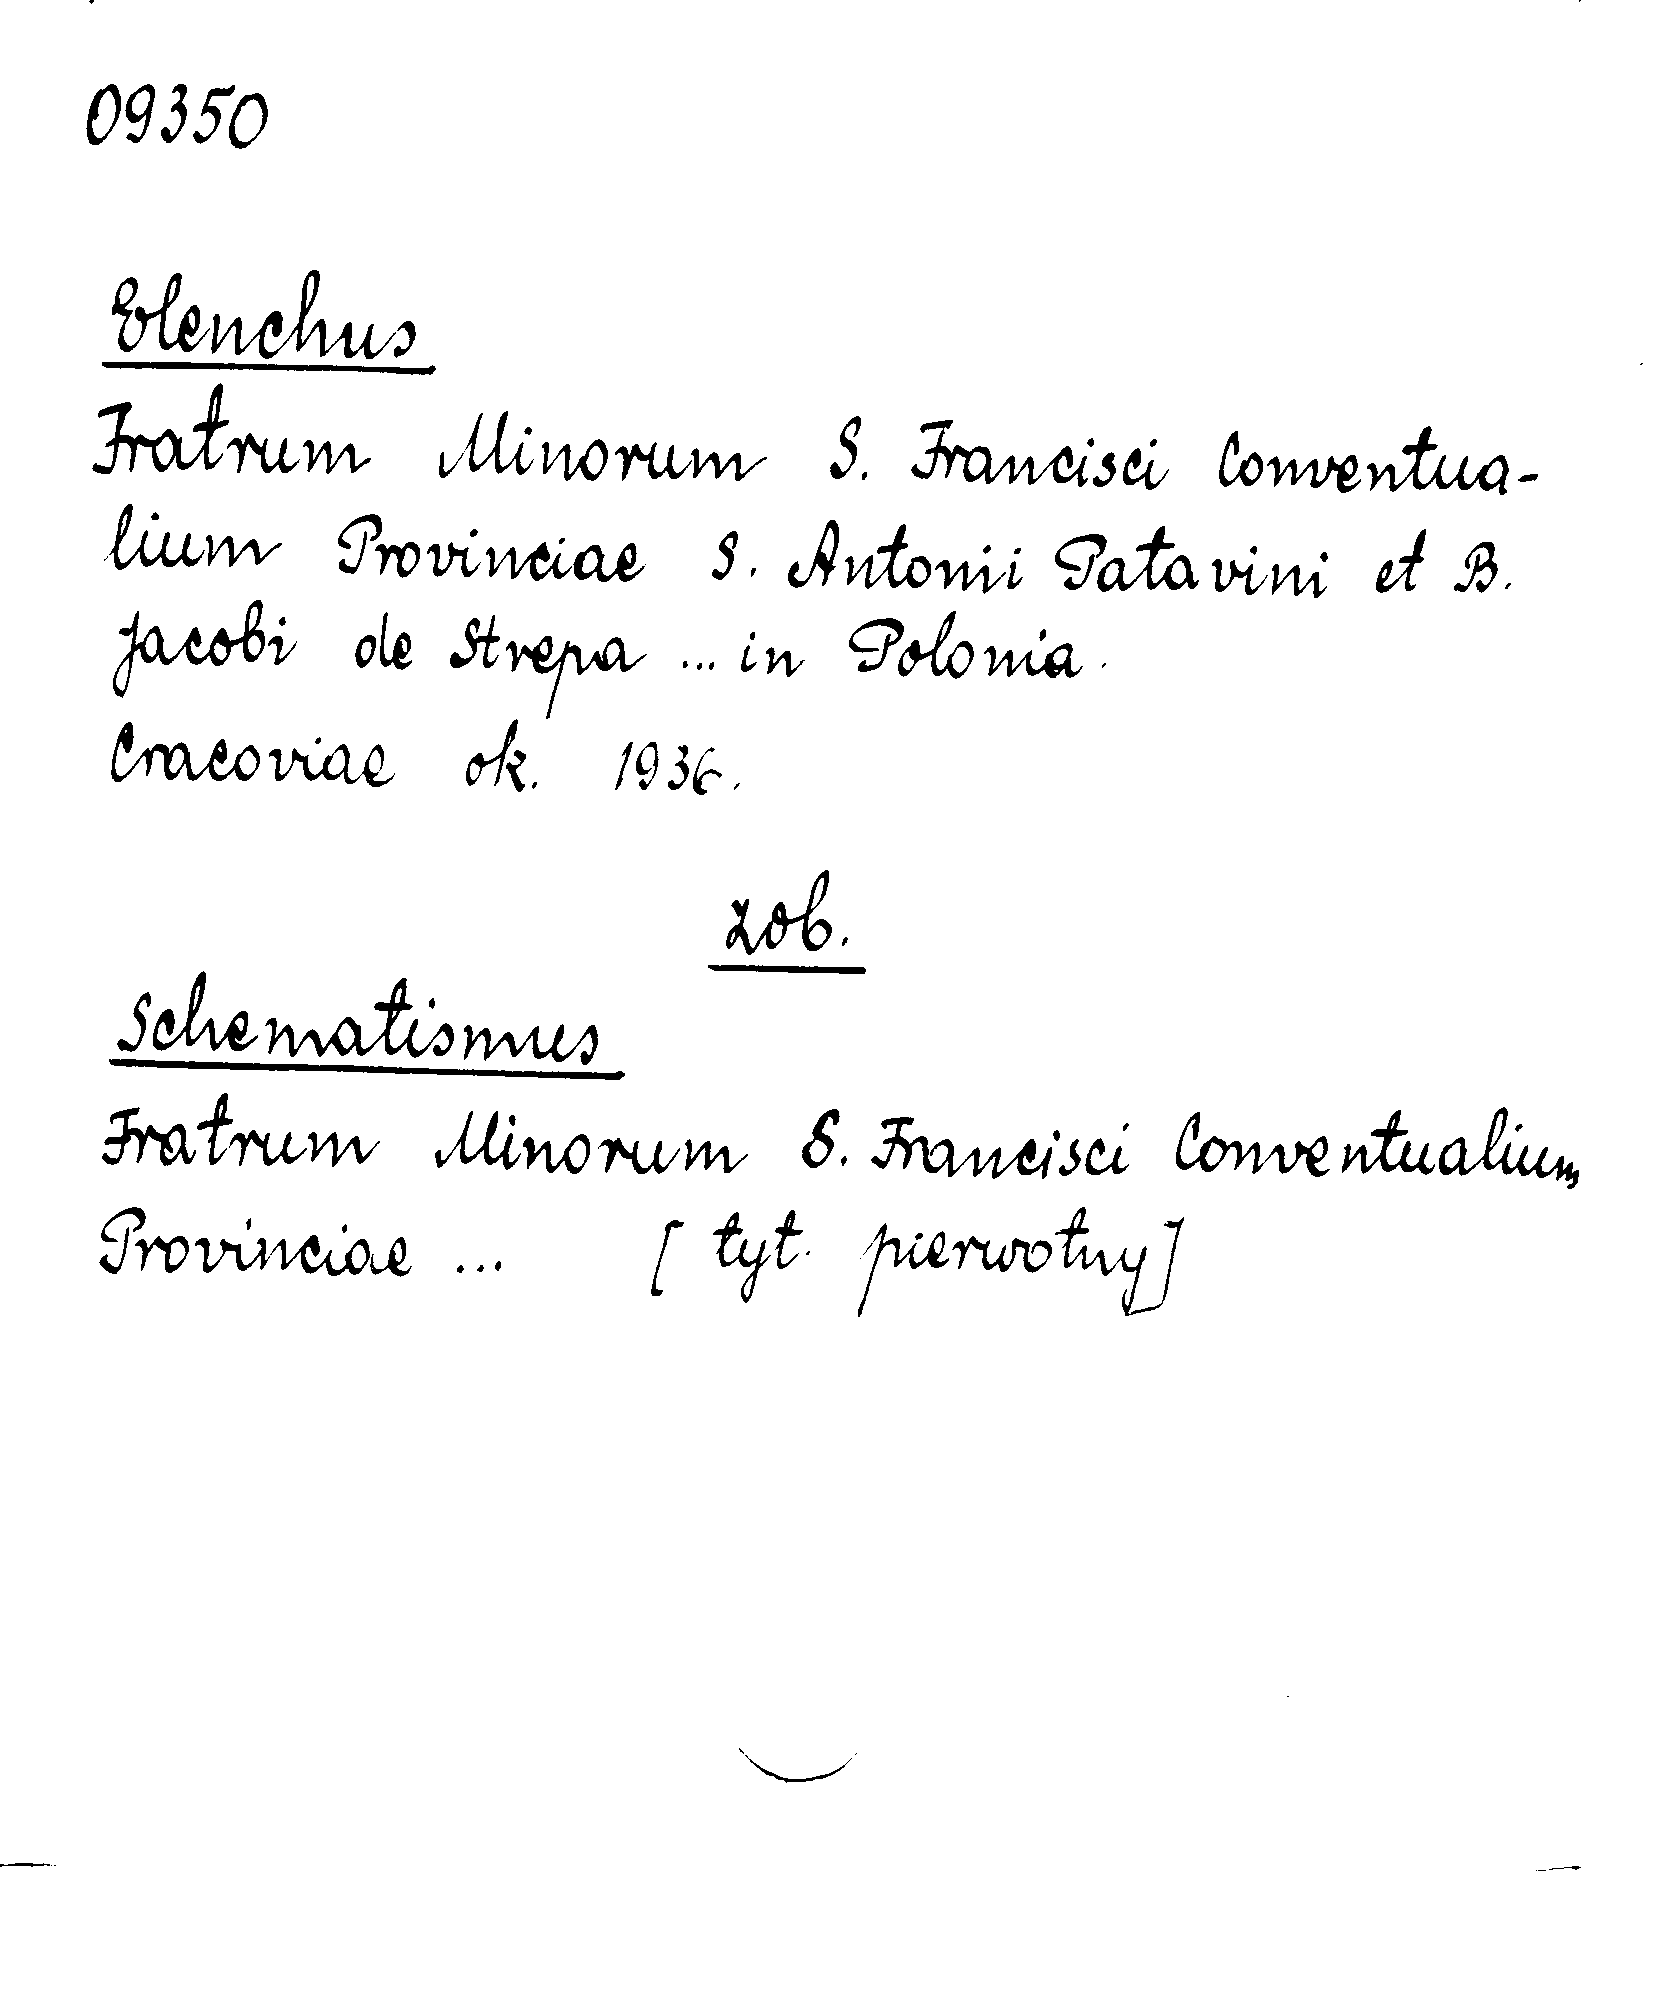 09350
Elenchus
Fratrum Minorum S. Francisci Conventua-
lium Provinciae S. Antonii Patavini et B.
Jacobi de Strepa ... in Polonia.
Cracoviae ok. 1936.
zob.
Schematismus
Fratrum Minorum S. Francisci Conventualium
Provinciae ... [tyt. pierwotny]